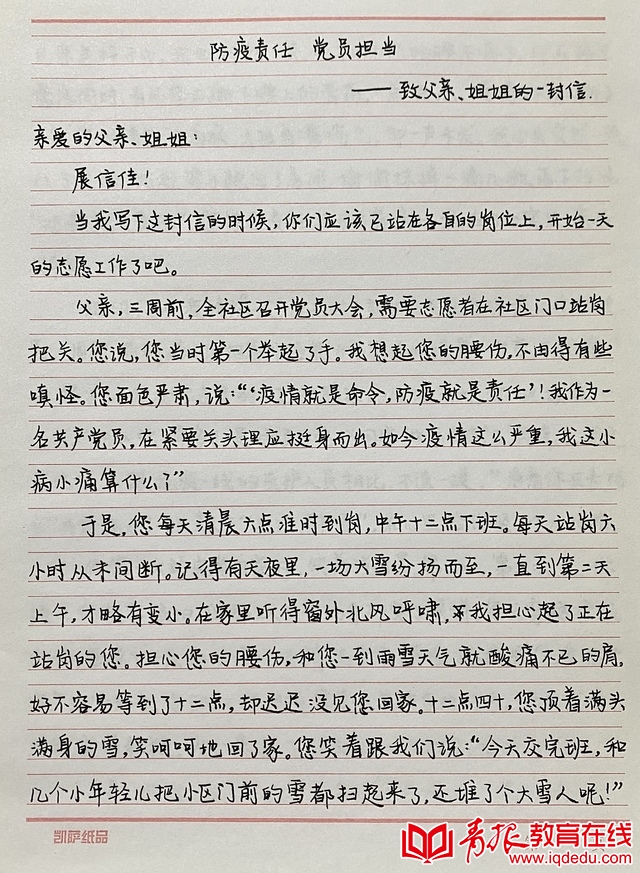 防疫责任 党员担当
——致父亲、姐姐的一封信.
亲爱的父亲、姐姐:
展信佳!
当我写下这封信的时候,你们应该已站在各自的岗位上,开始一天
的志愿工作了吧。
父亲,三周前,全社区召开党员大会,需要志愿者在社区门口站岗
把关。您说,您当时第一个举起了手。我想起您的腰伤,不由得有些
嗔怪。您面色严肃,说:“‘疫情就是命令,防疫就是责任’!我作为一
名共产党员,在紧要关头理应挺身而出。如今疫情这么严重,我这小
病小痛算什么?”
于是,您每天清晨六点准时到岗,中午十二点下班。每天站岗六
小时从未间断。记得有天夜里,一场大雪纷扬而至,一直到第二天
上午,才略有变小。在家里听得窗外北风呼啸,我担心起了正在
站岗的您。担心您的腰伤,和您一到雨雪天气就酸痛不已的肩,
好不容易等到了十二点,却迟迟没见您回家。十二点四十,您顶着满头
满身的雪,笑呵呵地回了家。您笑着跟我们说:“今天交完班,和
几个小年轻儿把小区门前的雪都扫起来了,还堆了个大雪人呢!”
凯萨纸品
青报教育在线
www.iqdedu.com